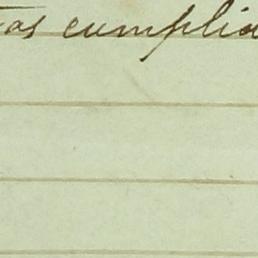 tas cumplid